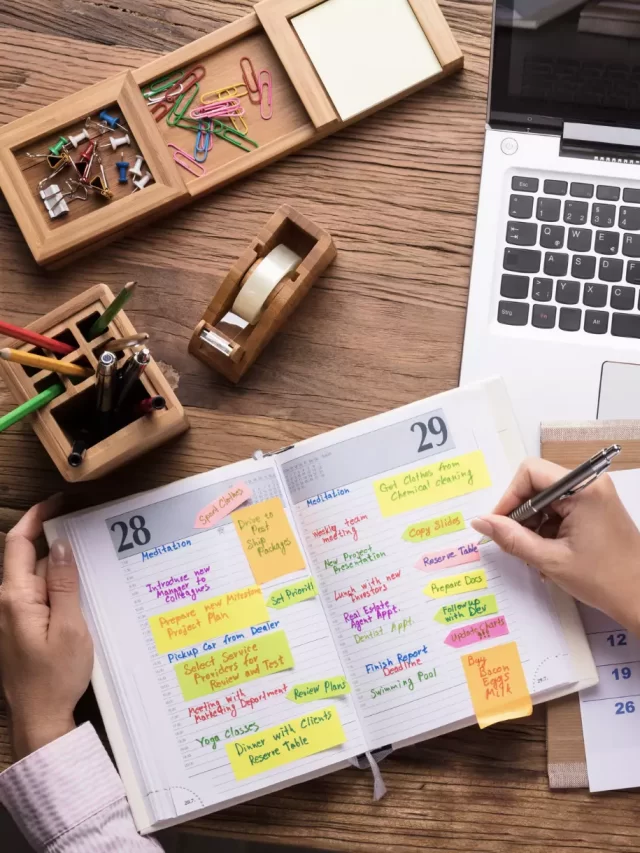 28
Sport Clothes
Drive to
Post
Ship
Packages
Meditation
Introduce new
Manager to
Colleagues
Set Prioriti
Prepare new Milestone
Project Plan
Pickup Car from Dealer
Select Service
Providers for
Review and Test
Meeting with
Marketing Department
Review Plans
Yoga Classes
Dinner with Clients
Reserve Table
29
Meditation
Get Clothes from
Chemical cleaning
Weekly team
meeting
Copy Slides
New Project
Presentation
Reserve Table
Lunch with new
Investors
Prepare Docs
Real Estate
Agent Appt.
Followup
with Dev
Dental Appt.
Update Charts
Finish Report
Deadline
Swimming Pool
Buy
Bacon
Eggs
Milk
Esc
1
2
3
Q
W
E
R
A
S
D
F
Y
X
C
Strg
Fn
Alt
12
19
26